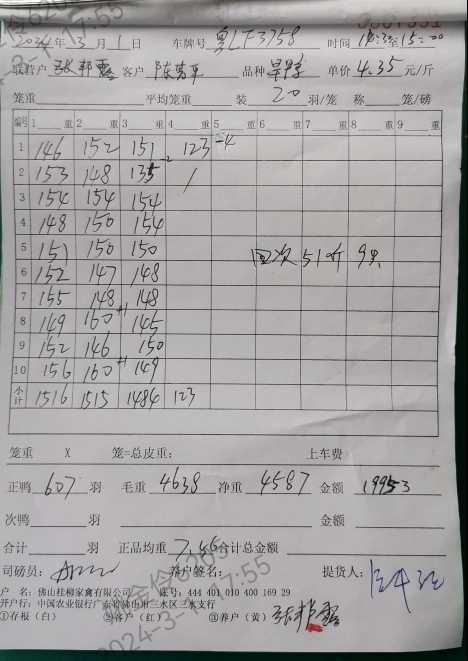 2024年3月1日 车牌号 粤LF3758 时间
联养户 张邦露 客户 品种 单价 4.35 元/斤
笼重 平均笼重 装 20 羽/笼 称 笼/磅
编号 1 重 2 重 3 重 4 重 5 重 6 重 7 重 8 重 9 重
1 146 152 151 123 -4
2 153 148 135 -2
3 154 154 154
4 148 150 154
5 151 150 150 回次 51斤 9只
6 152 147 148
7 155 148 148
8 149 160 +1 145
9 152 146 150
10 156 160 +1 149
小计 1516 1515 1484 123
笼重 X 笼=总皮重: 上车费
正鸭 607 羽 毛重 4638 净重 4587 金额 19953
次鸭 羽 金额
合计 羽 正品均重 7.46 合计总金额
司磅员: 养户签名: 提货人:
户 名: 佛山桂柳家禽有限公司 账号: 444 401 010 400 169 29
开户行: 中国农业银行广东佛山市三水区三水支行
①存根(白) ②客户(红) ③养户(黄) 张邦露
2024-3-1 17:55